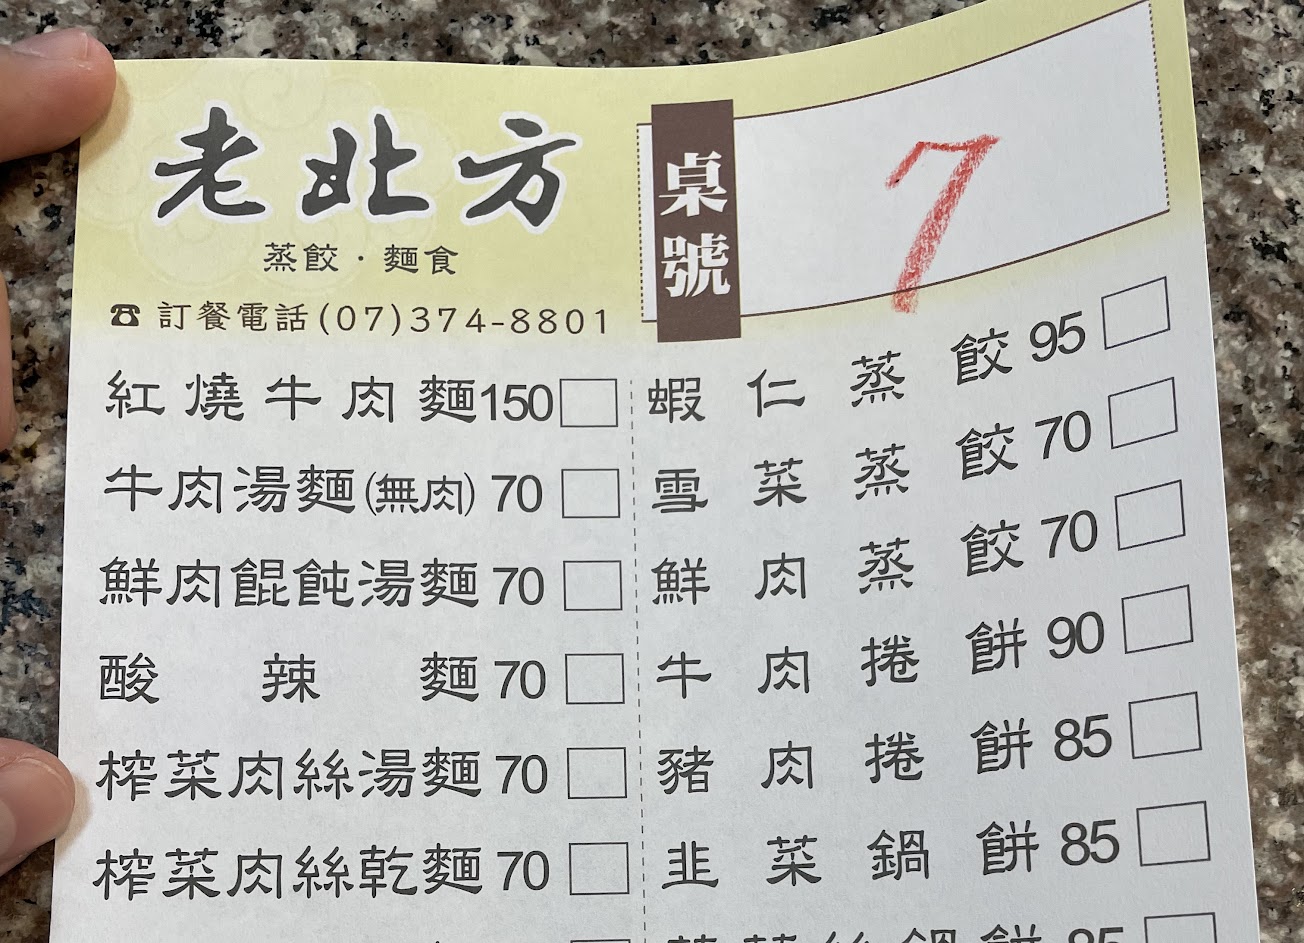 老北方
蒸餃・麵食
☎訂餐電話(07)374-8801
桌號
7
紅燒牛肉麵150
牛肉湯麵(無肉)70
鮮肉餛飩湯麵70
酸辣麵70
榨菜肉絲湯麵70
榨菜肉絲乾麵70
蝦仁蒸餃95
雪菜蒸餃70
鮮肉蒸餃70
牛肉捲餅90
豬肉捲餅85
韭菜鍋餅85
鍋餅85